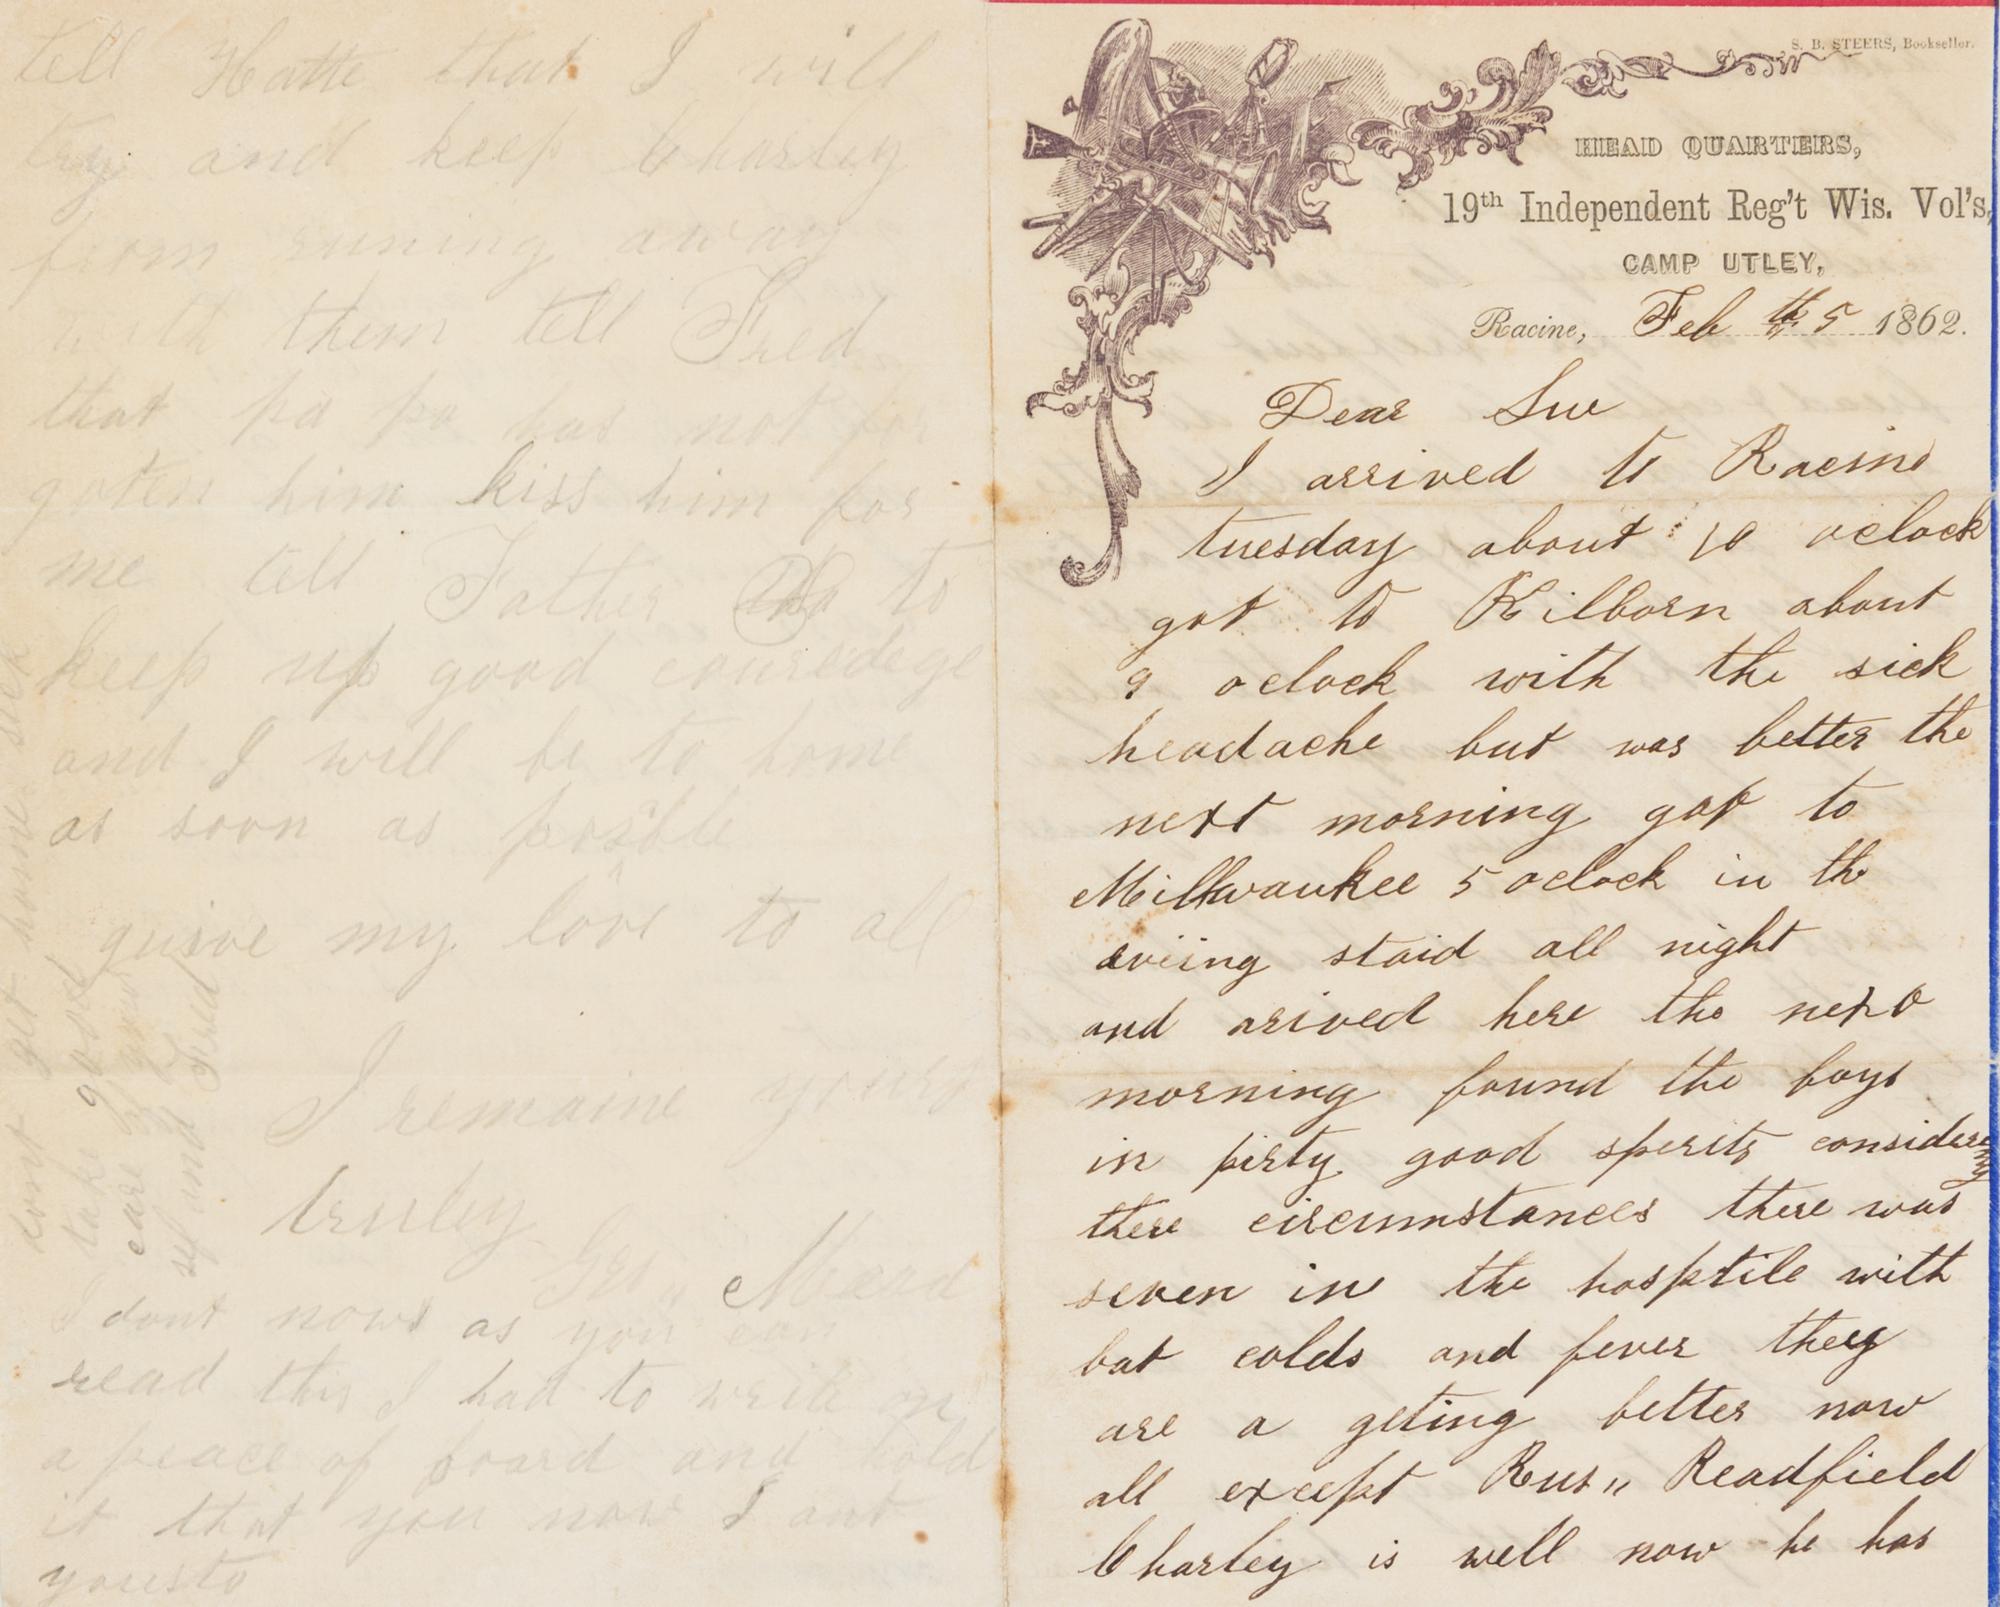 S. B. STEERS, Bookseller.
HEAD QUARTERS,
19th Independent Reg't Wis. Vol's,
CAMP UTLEY,
Racine, Feb th 5 1862.
Dear Suv
I arrived to Racine
tuesday about 10 oclock
got to Kilborn about
9 oclock with the sick
headache but was better the
next morning got to
Millwaukee 5 oclock in th
eviing staid all night
and arived here the next
morning found the boys
in pirty good sperits considering
there circumstances there was
seven in the hosptile with
bat colds and fever they
are a geting better now
all except Rus,, Readfield
Charley is well now he has
tell Hatte that I will
try and keep Charley
from runing away
with them tell Fred
that pa pa has not for
goten him kiss him for
me tell Father to
keep up good couredege
and I will be to home
as soon as posible
guive my love to all
I remaine yours
truley
Geo,, Mead
I dont nows as you can
read this I had to write on
a peace of board and hold
it that you now I ant
yousto
dont get home sick
take good
care of your
self and Fred